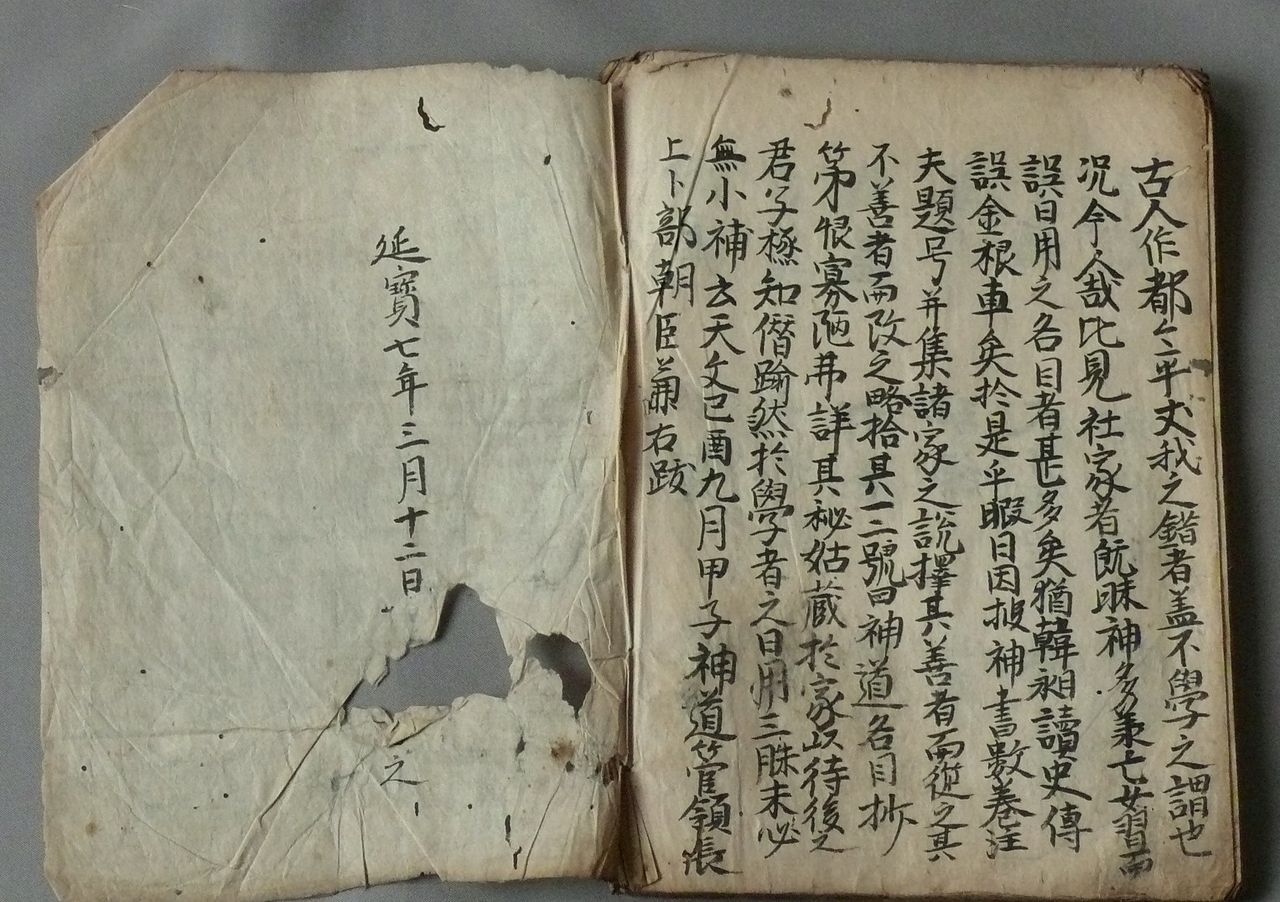 古人作都々平丈我之錯者盖不學之謂也
况今人哉比見社家者旣昧神多兼亡女習而
誤日用之名目者甚多矣猶韓昶讀史傳
誤金根車矣於是乎暇日因披神書數卷注
夫題号并集諸家之説擇其善者而從之其
不善者而改之略拾其一二號曰神道名目抄
第恨寡陋弗詳其秘姑藏於家以待後之
君子極知僭踰然於學者之日用三昧未必
無小補云天文己酉九月甲子神道管領長
上卜部朝臣兼右跋
延寶七年三月十二日
之